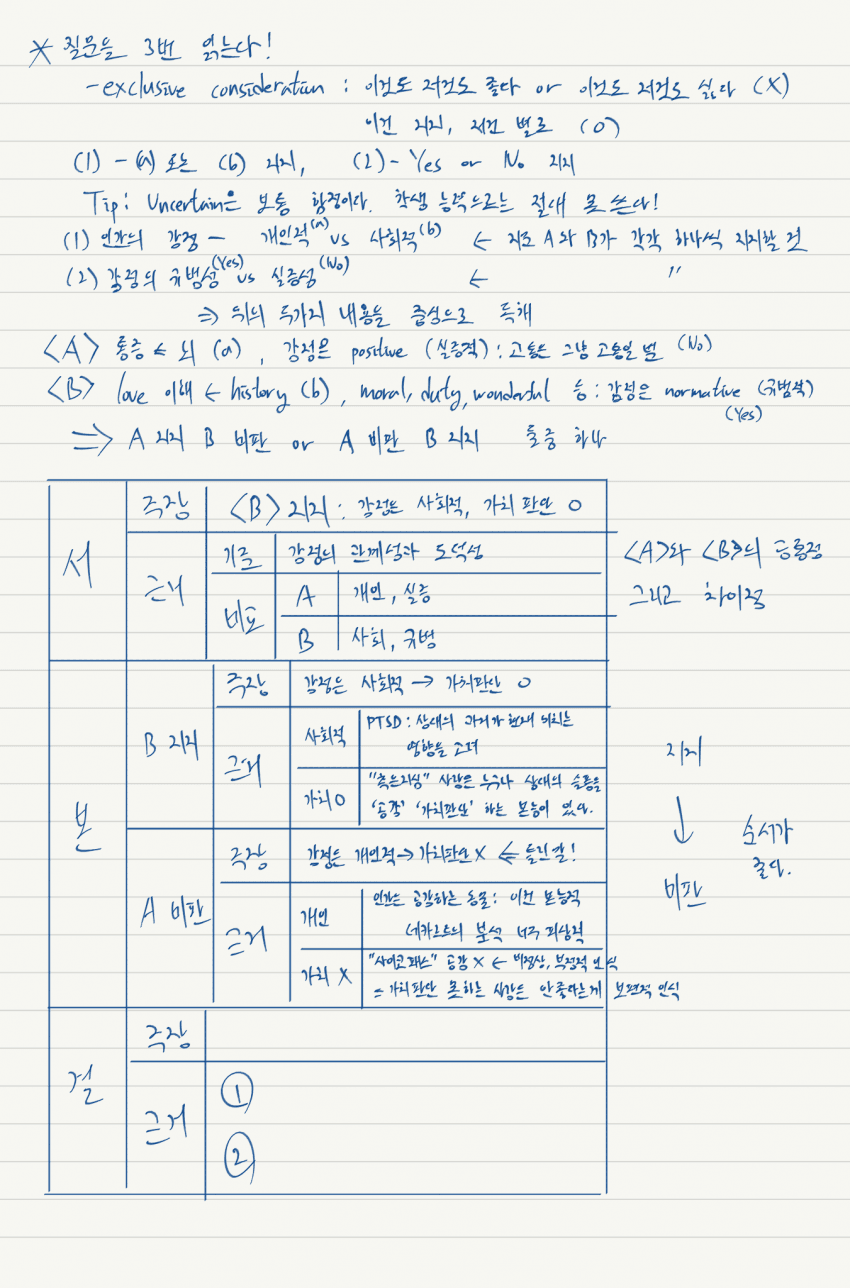 * 질문을 3번 읽는다!
- exclusive consideration : 이것도 저것도 좋다 or 이것도 저것도 싫다 (X)
이건 지지, 저건 별로 (O)
(1) - (a) 또는 (b) 지지, (2) - Yes or No 지지
Tip: Uncertain은 보통 함정이다. 학생 능력으로는 절대 못 쓴다!
(1) 인간의 감정 - 개인적(a) vs 사회적(b) ← 지도 A와 B가 각각 하나씩 지지할 것
(2) 감정의 규범성(Yes) vs 실증성(No) ← "
⇒ 위의 두가지 내용을 중심으로 독해
<A> 통증 ← 뇌 (a), 감정은 positive (실증적) : 고통은 그냥 고통일 뿐 (No)
<B> love 이해 ← history (b), moral, duty, wonderful 등 : 감정은 normative (규범적)
(Yes)
⇒ A 지지 B 비판 or A 비판 B 지지 둘중 하나
서
주장
<B> 지지 : 감정은 사회적, 가치 판단 O
근거
기준
감정의 관계성과 도덕성
비교
A 개인, 실증
B 사회, 규범
<A>와 <B>의 공통점
그리고 차이점
본
B 지지
주장
감정은 사회적 → 가치판단 O
근거
사회적
PTSD : 상대의 과거가 현재 미치는
영향을 고려
가치 O
"측은지심" 사람은 누구나 상대의 슬픔을
'공감' '가치판단' 하는 본능이 있다.
A 비판
주장
감정은 개인적 → 가치판단 X ← 틀린 말!
근거
개인
인간는 공감하는 동물 : 이건 본능적
데카르트의 분석 너무 피상적
가치 X
"사이코패스" 공감 X ← 비정상, 부정적 인식
= 가치판단 못하는 사람은 안좋다는게 보편적 인식
지지
↓
비판
순서가
좋다.
결
주장
근거
①
②